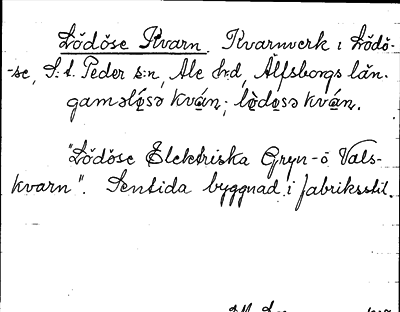 Lödöse Kvarn. Kvarnverk i Lödö-
-se, S:t Peder s:n, Ale h:d, Älfsborgs län.
gaməlø̀sə kván; lø̀dəsə kván.
"Lödöse Elektriska Gryn- o Vals-
kvarn". Sentida byggnad i fabriksstil.